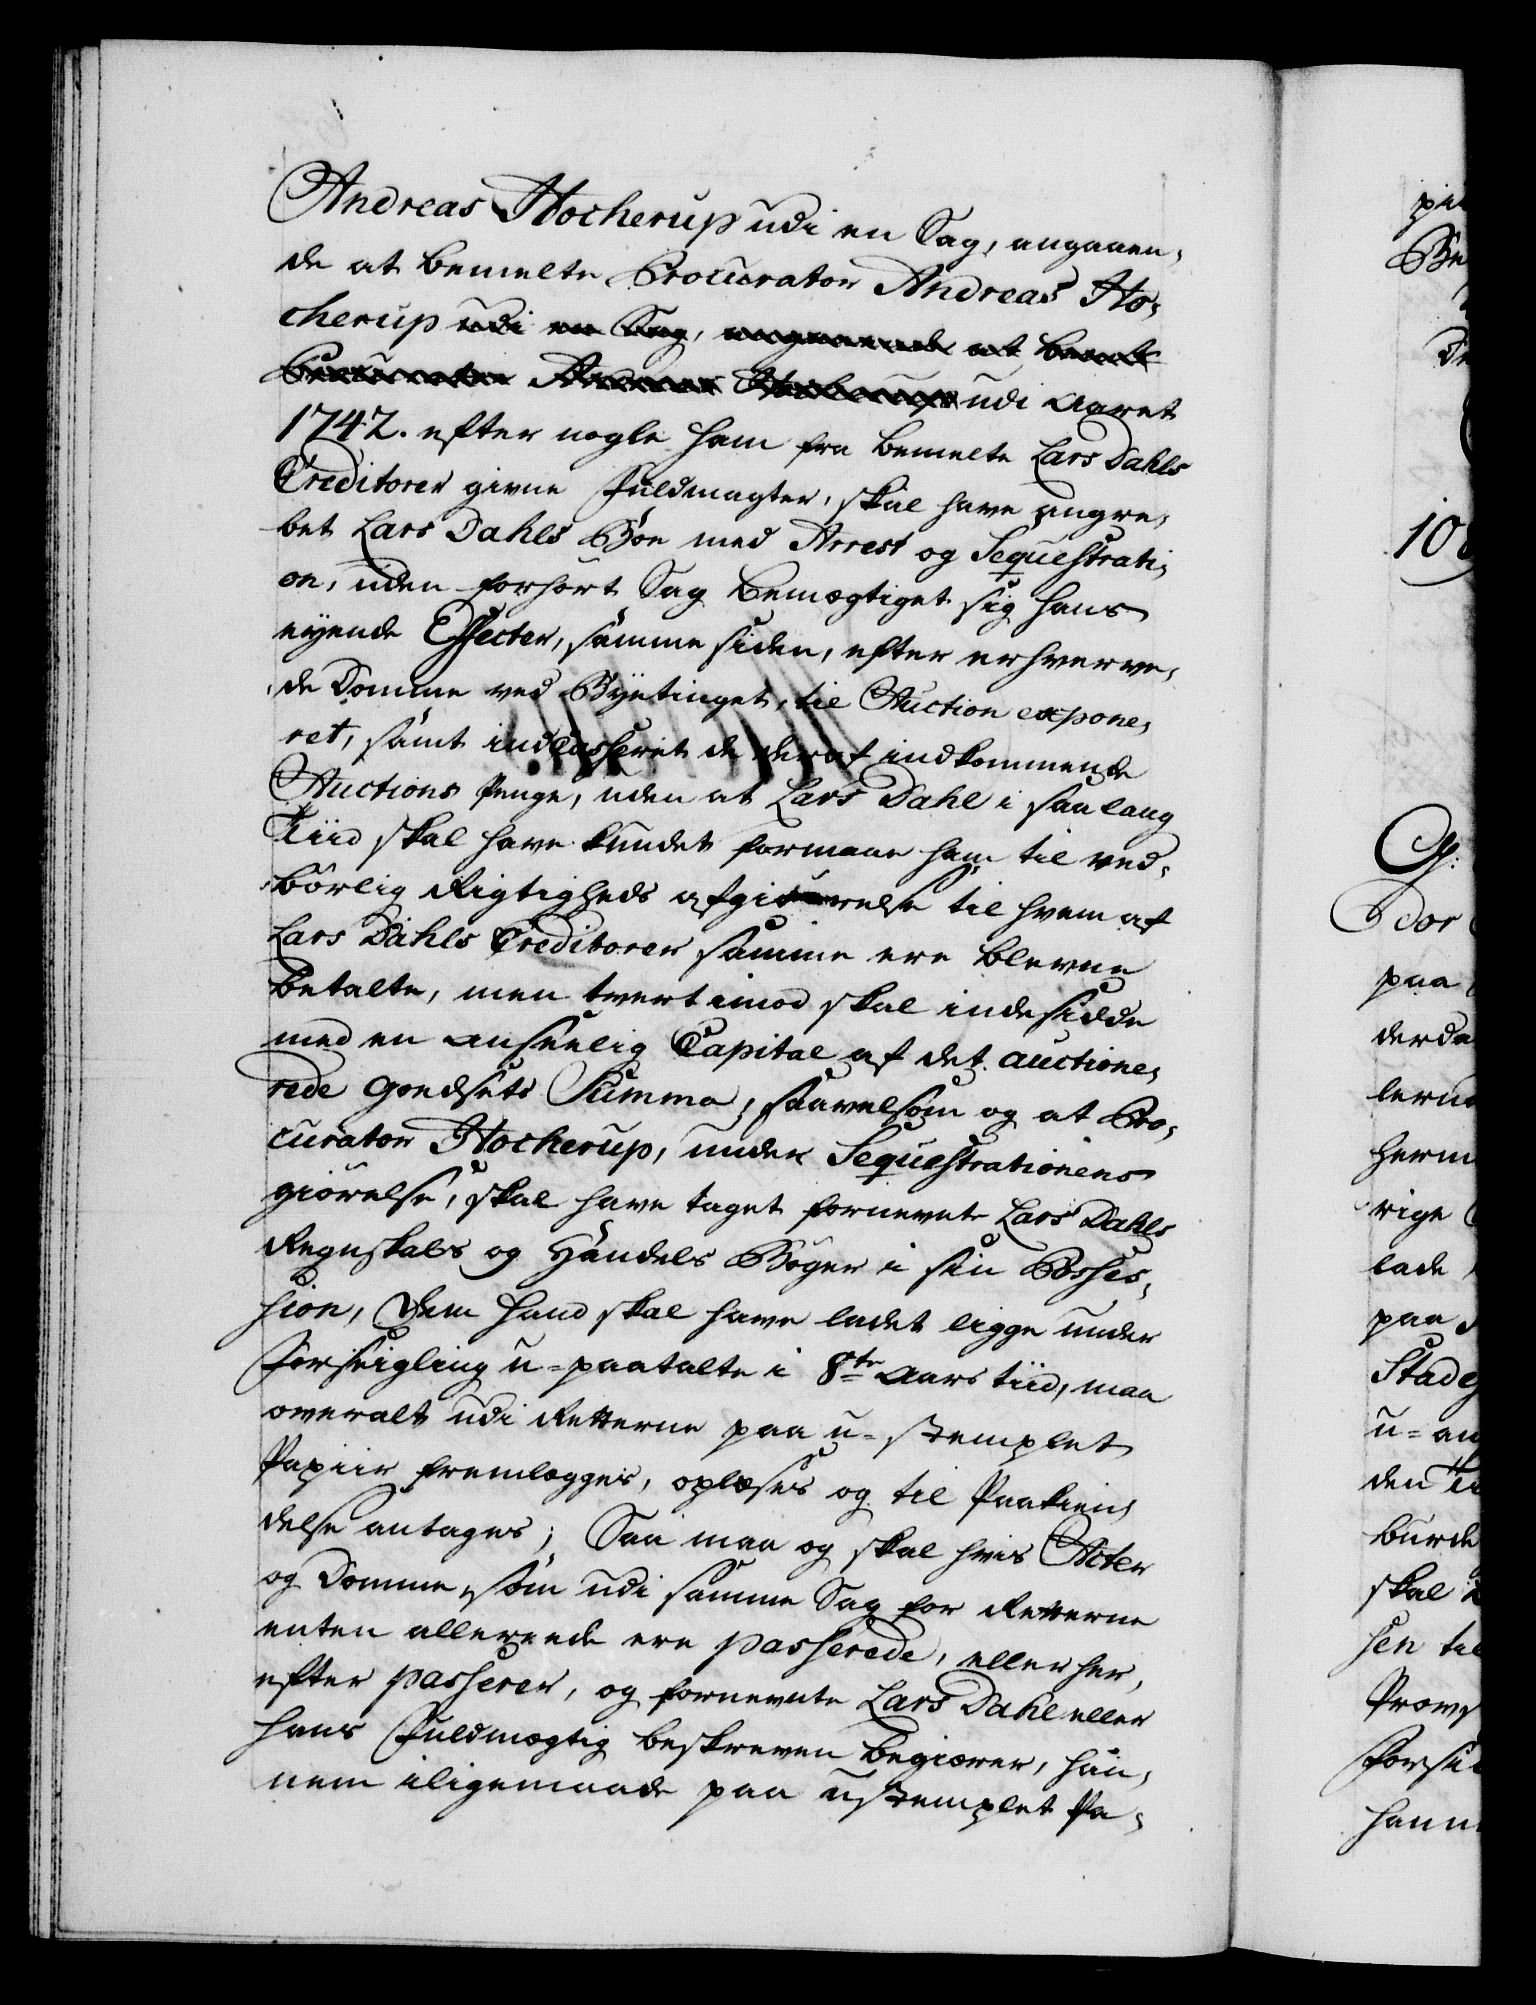 Andreas Hocherup udi en Sag, angaaen,
de at bemelte Procurator Andreas Ho,
cherup udi en Sag, angaaende at bemelte
Procurator Andreas Hocherup udi Aaret
1742. efter nogle ham fra bemelte Lars Dahls
Creditorer givne Fuldmagter, skal have angre,
bet Lars Dahls Boe med Arrest og Sequestrati,
on, uden forhört Sag bemægtiget sig hans
eyende Effecter, samme siden, efter erhverve,
de Domme ved Byetinget, til Auction expone,
ret, samt indcasseret de deraf indkommende
Auctions Penge, uden at Lars Dahl i saa lang
Tiid skal have kundet formaae ham til ved,
börlig Rigtigheds afgiörelse til hvem af
Lars Dahls Creditorer samme ere blevne
betalte, men tvert imod skal indesidde
med en anseelig Capital af det auctione,
rede Goedsets Summa, saavelsom og at Pro,
curator Hocherup, under Sequestrationens
giörelse, skal have taget fornevnte Lars Dahls
Regnskabs og Handels Böger i sin Posses,
sion, dem hand skal have ladet ligge under
Forseigling u-paatalte i 8te Aars tiid, maa
overalt udi Retterne paa u-stemplet
Papiir fremlegges, oplæses og til Paakien,
delse antages; Saa maa og skal hvis Acter
og Domme, som udi samme Sag for Retterne
enten allereede ere passerede, eller her,
efter passerer, og fornevnte Lars Dahl eller
hans Fuldmægtig beskreven begiærer, han,
nem iligemaade paa ustemplet Pa,